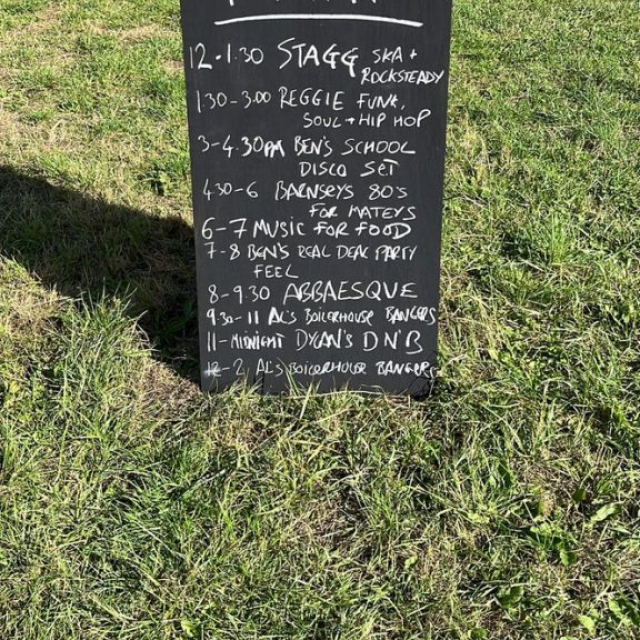 12-1.30 STAGG SKA +
ROCKSTEADY
1.30-3.00 REGGIE FUNK,
SOUL + HIP HOP
3-4.30PM BEN'S SCHOOL
DISCO SET
4.30-6 BARNSEYS 80'S
FOR MATEYS
6-7 MUSIC FOR FOOD
7-8 BEN'S REAL DEAL PARTY
FEEL
8-9.30 ABBAESQUE
9.30-11 AL'S BOILERHOUSE BANGERS
11-MIDNIGHT DYLAN'S DN'B
12-2 AL'S BOILERHOUSE BANGERS